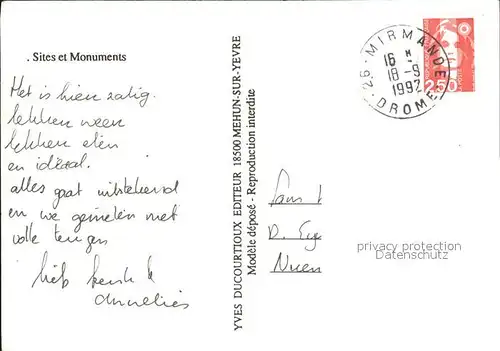 . Sites et Monuments
Het is hier zalig.
lekker weer
lekker eten
en ideaal.
alles gaat uitstekend
en we genieten met
volle teugen
liefs
Annelies
YVES DUCOURTIOUX EDITEUR 18500 MEHUN-SUR-YEVRE
Modèle déposé - Reproduction interdite
26 - MIRMANDE
16 H
18-9
1992
DROME
2,50
Fam.
D.
privacy protection
Datenschutz